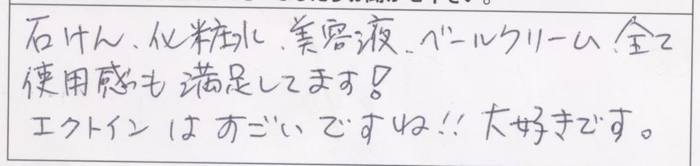 石けん、化粧水、美容液、ベールクリーム 全て
使用感も満足してます!
エクトインはすごいですね!! 大好きです。